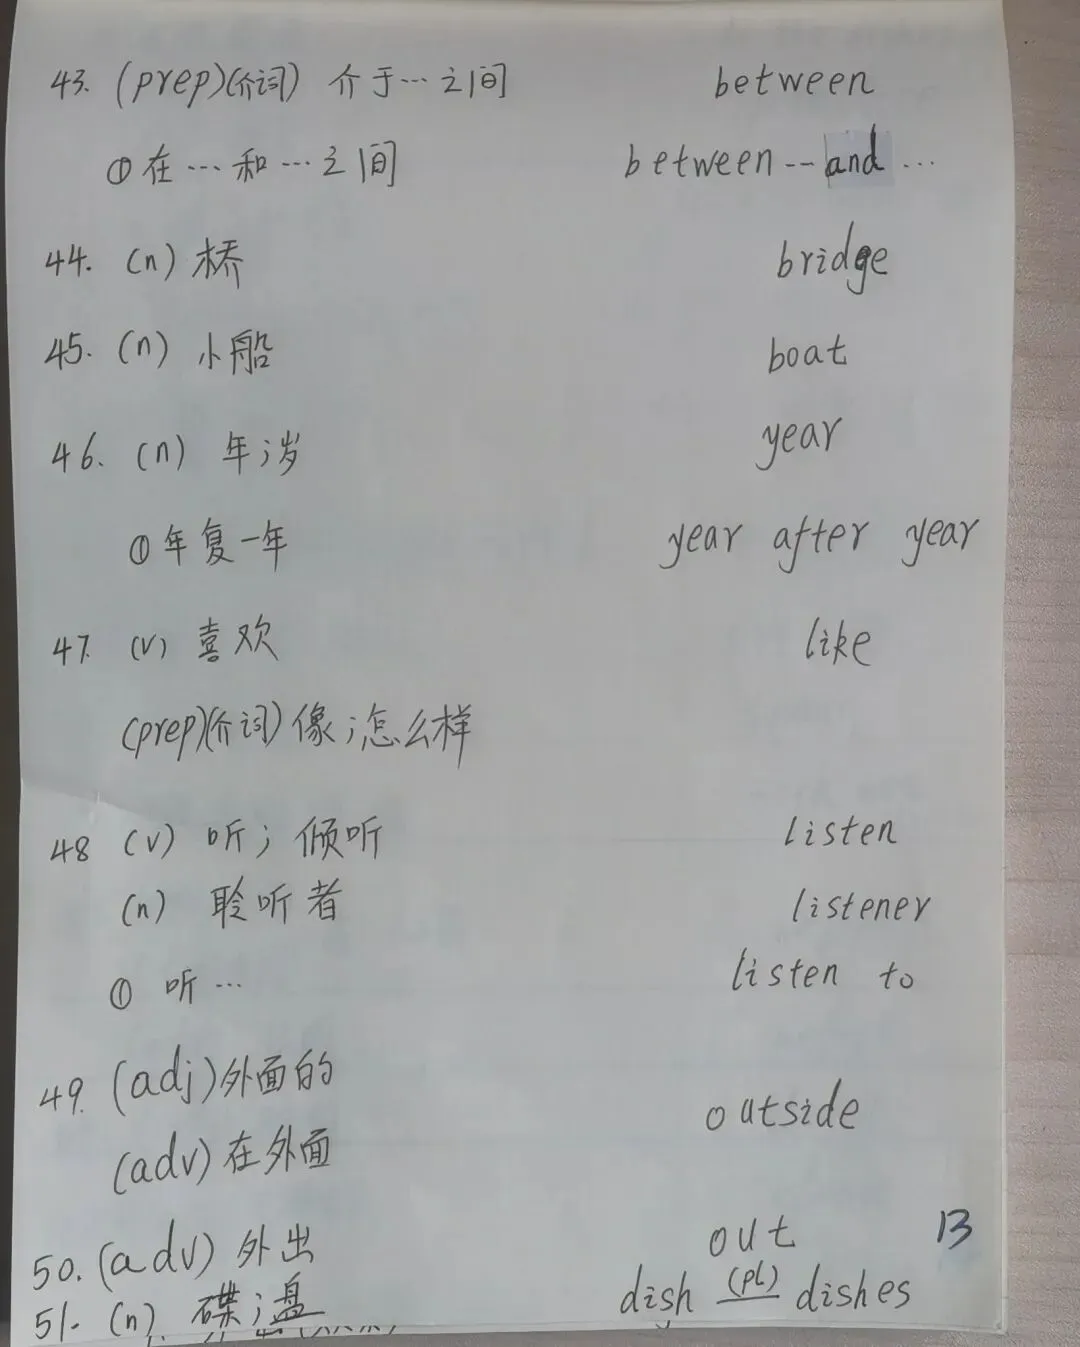 43. (prep)(介词) 介于…之间 between
①在…和…之间 between -- and …
44. (n) 桥 bridge
45. (n) 小船 boat
46. (n) 年;岁 year
①年复一年 year after year
47. (v) 喜欢 like
(prep)(介词) 像;怎么样
48 (v) 听; 倾听 listen
(n) 聆听者 listener
① 听… listen to
49. (adj)外面的
outside
(adv)在外面
50. (adv) 外出 out 13
51. (n) 碟;盘 dish (pl) dishes